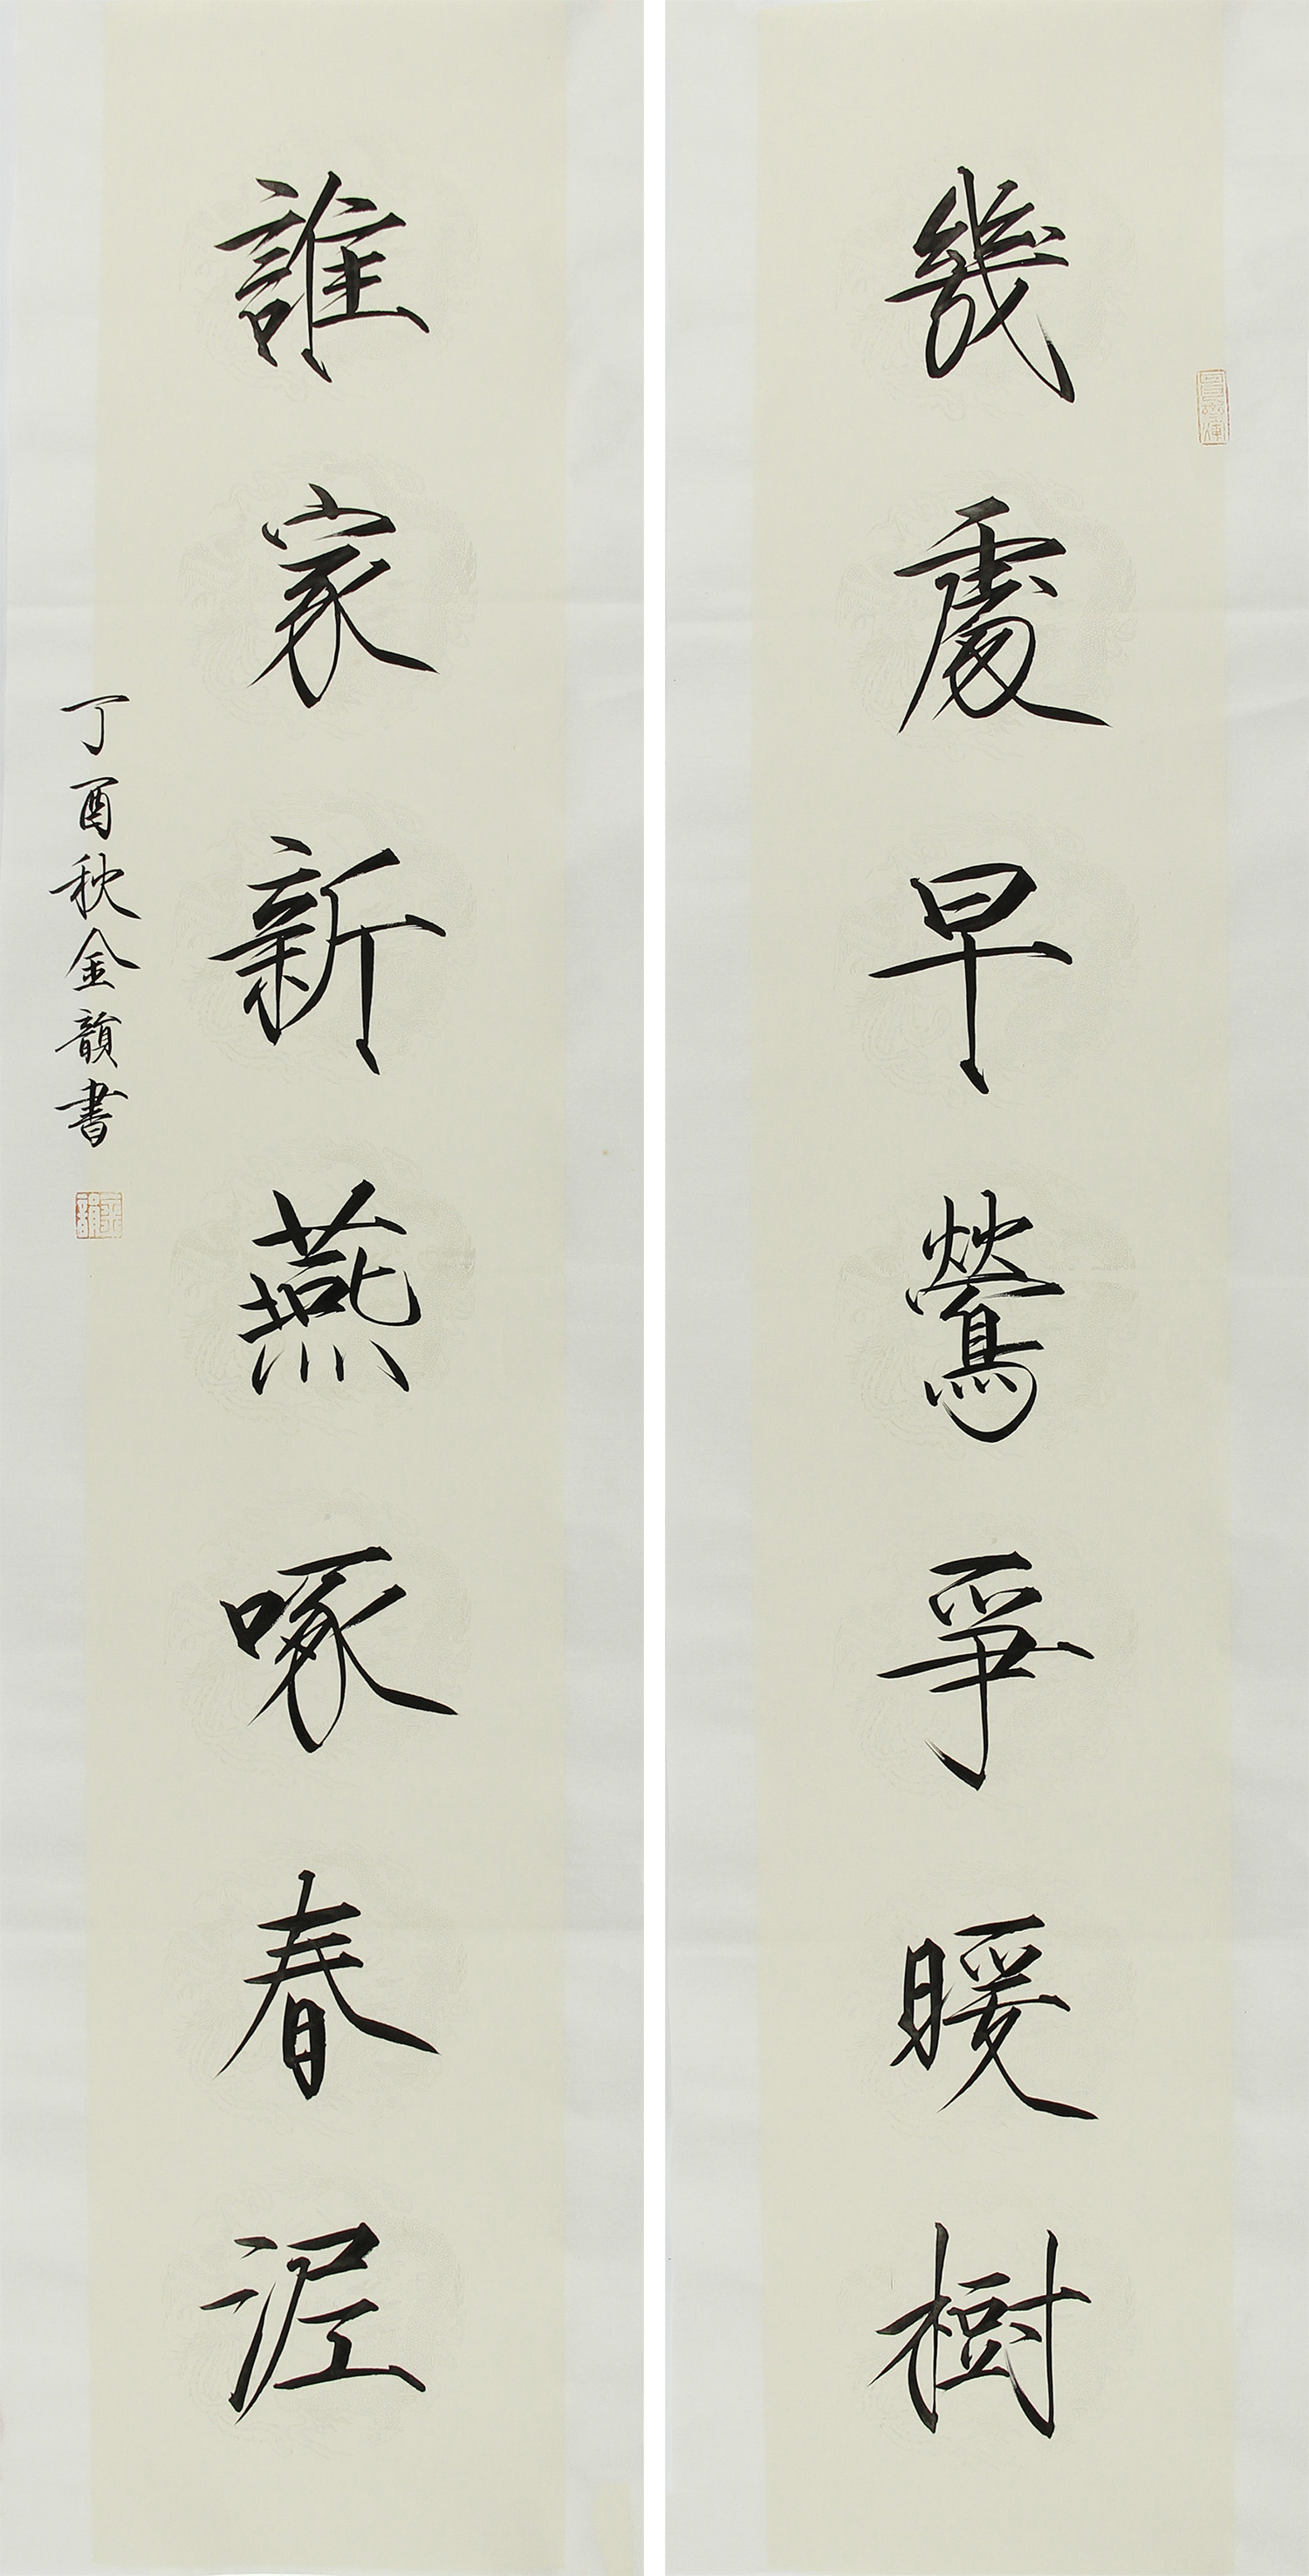 幾處早鶯爭暖樹
誰家新燕啄春泥
丁酉秋金韻書
金韻